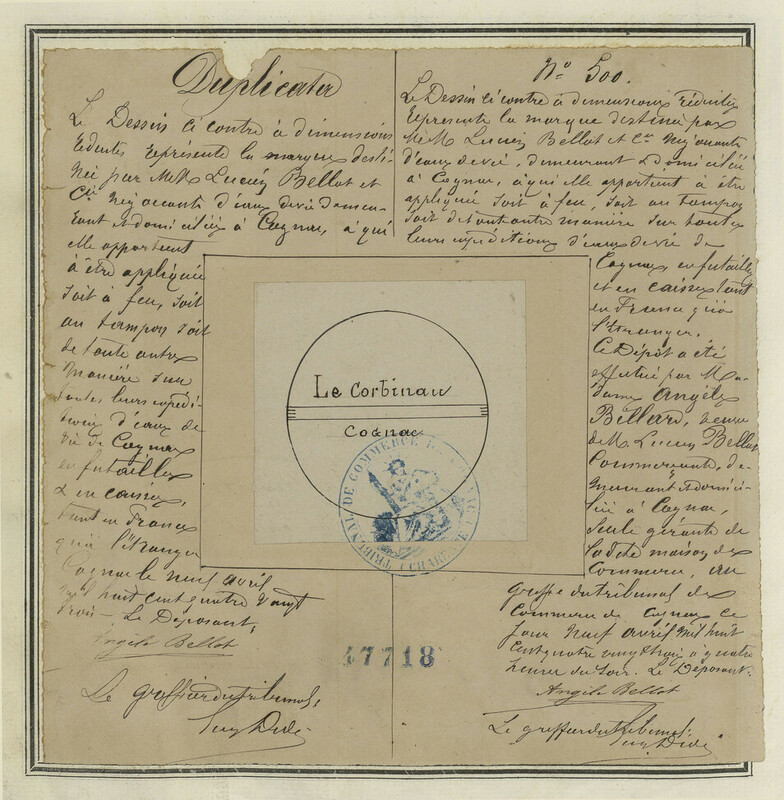 Duplicata
Le Dessin ci contre à dimensions
réduites représente la marque desti-
née par MM Lucien Bellot et
Cie Négociants d'eaux de vie demeu-
rant et domiciliés à Cognac, à qui
elle appartient
à être appliquée
soit à feu, soit
au tampon soit
de toute autre
manière sur
toutes leurs expédi-
tions d'eaux de
vie de Cognac
en futailles
& en caisses,
tant en France
qu'à l'étranger
Cognac le neuf avril
mil huit cent quatre vingt
trois – Le Déposant,
Angèle Bellot
Le greffier du tribunal,
No 500.
Le Dessin ci contre à dimensions réduites
représente la marque destinée par
MM. Lucien Bellot et Cie Négociants
d'eaux de vie, demeurant & domiciliés
à Cognac, à qui elle appartient à être
appliquée soit à feu, soit au tampon
soit de toute autre manière sur toutes
leurs expéditions d'eaux de vie de
Cognac, en futailles
et en caisses tant
en France qu'à
l'Etranger.
Ce Dépôt a été
effectué par Ma-
dame Angèle
Bellard, veuve
de M. Lucien Bellot
Commerçante, de-
meurant & domici-
liée à Cognac,
seule gérante de
la dite maison de
Commerce, au
greffe du tribunal de
Commerce de Cognac ce
jour neuf avril mil huit
cent quatre vingt trois à quatre
heures du soir. Le Déposant.
Angèle Bellot
Le greffier du tribunal.
Le Corbinau
Cognac
TRIBUNAL DE COMMERCE
CHARENTE
47718